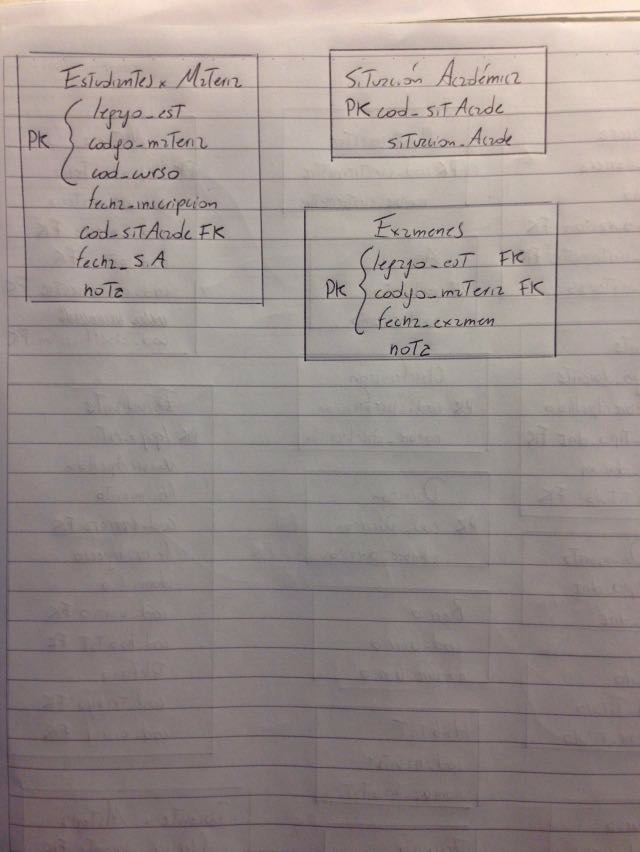 Estudiantes x Materia
PK
legajo_est
codgo_materia
cod_curso
fecha_inscripcion
cod_sitAcade FK
fecha_S.A
nota
Situación Académica
PK cod_sitAcade
situacion_Acade
Exámenes
PK
legajo_est FK
codgo_materia FK
fecha_examen
nota